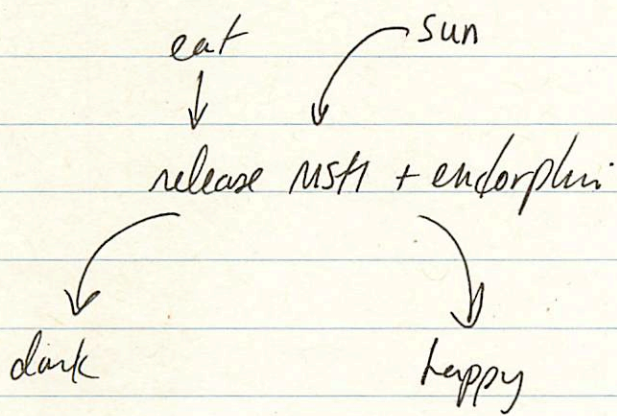 eat sun
release MSH + endorphin
dark happy